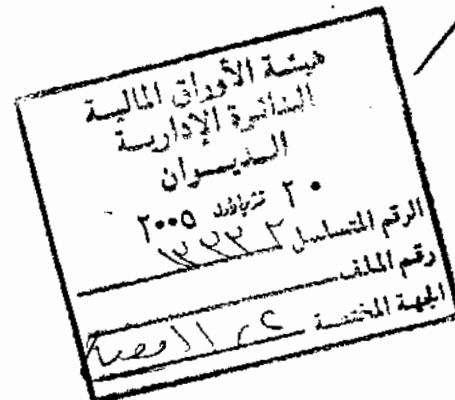 هيئة الأوراق المالية
الدائرة الإدارية
الديوان
٢٠ تشرين أول ٢٠٠٥
الرقم المتسلسل
رقم الملف
الجهة المختصة